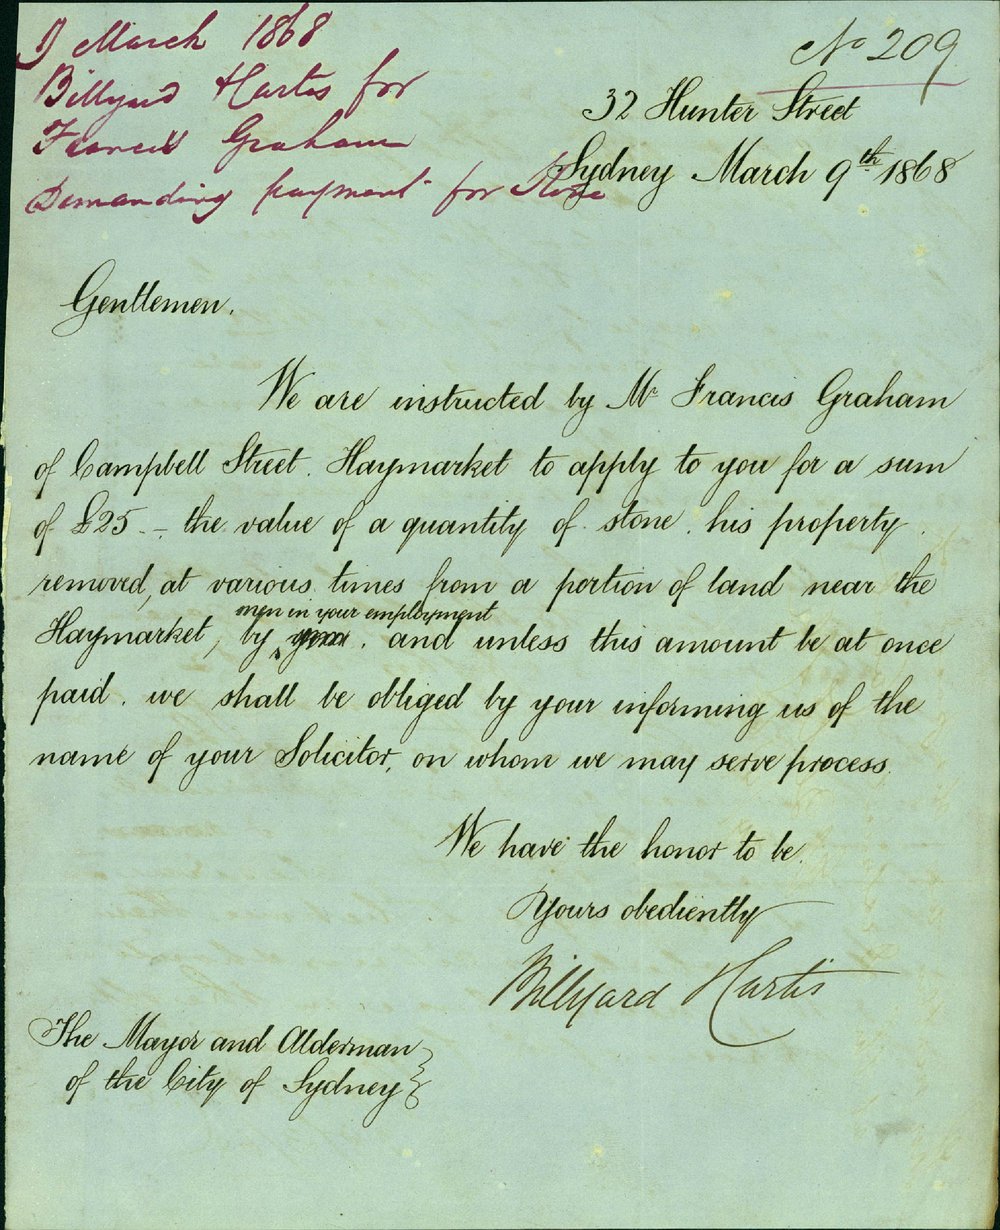 9 March 1868
Billyard & Curtis for
Francis Graham
Demanding payment for Stone
No 209
32 Hunter Street
Sydney March 9th 1868
Gentlemen.
We are instructed by Mr Francis Graham
of Campbell Street. Haymarket to apply to you for a sum
of £25 - the value of a quantity of stone. his property.
removed, at various times from a portion of land near the
men in your employment
Haymarket, by . and unless this amount be at once
paid. we shall be obliged by your informing us of the
name of your Solicitor, on whom we may serve process.
We have the honor to be.
Yours obediently
Billyard Curtis
The Mayor and Alderman
of the City of Sydney